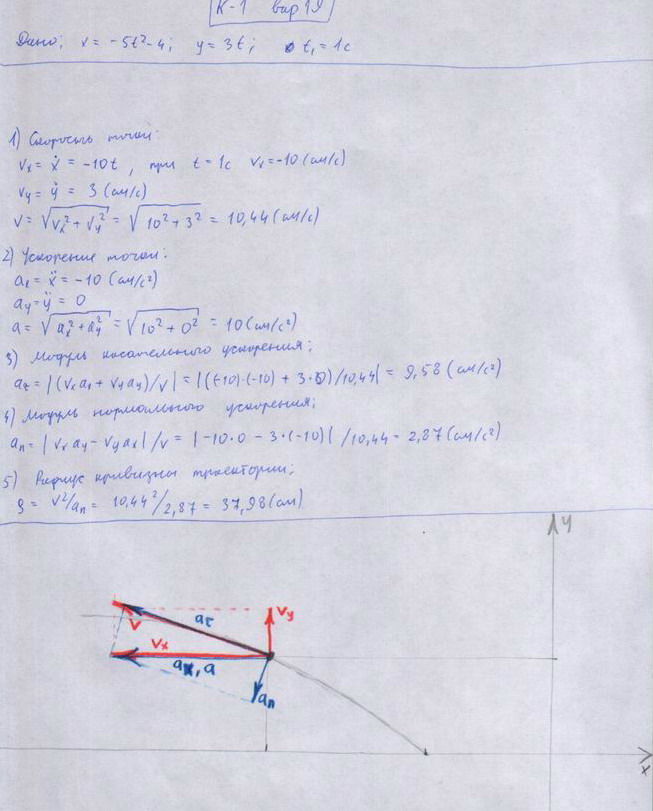 К-1 вар 19
Дано; x = -5t²-4; y = 3t; t₁ = 1c
1) Скорость точки:
Vx = ẋ = -10t, при t = 1c Vx = -10 (см/с)
Vy = ẏ = 3 (см/с)
V = √(Vx² + Vy²) = √(10² + 3²) = 10,44 (см/с)
2) Ускорение точки:
ax = ẍ = -10 (см/с²)
ay = ÿ = 0
a = √(ax² + ay²) = √(10² + 0²) = 10 (см/с²)
3) Модуль касательного ускорения;
aτ = |(Vx ax + Vy ay)/V| = |((-10)·(-10) + 3·0)/10,44| = 9,58 (см/с²)
4) Модуль нормального ускорения;
an = |Vx ay - Vy ax|/V = |-10·0 - 3·(-10)|/10,44 = 2,87 (см/с²)
5) Радиус кривизны траектории;
ρ = V²/an = 10,44²/2,87 = 37,98 (см)
y
Vy
aτ
V
Vx
ax, a
an
x